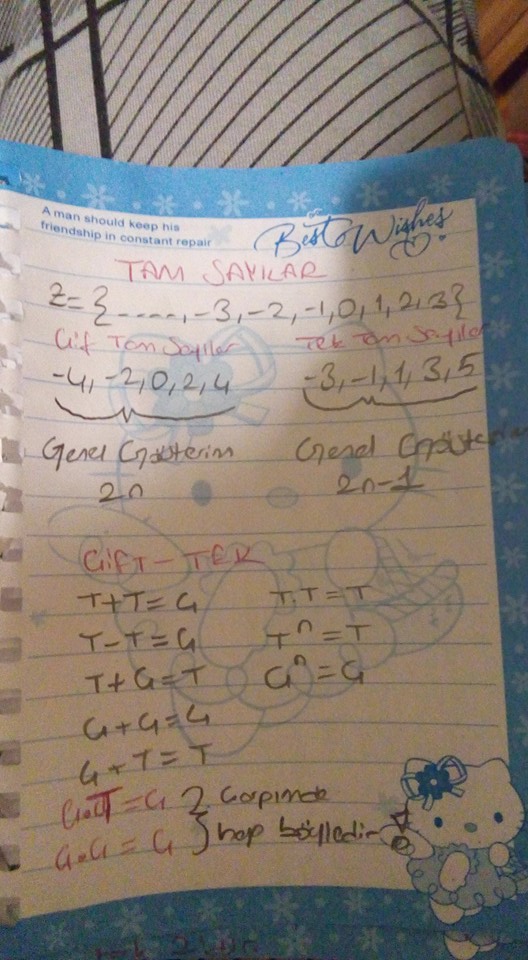 A man should keep his
friendship in constant repair
Best Wishes
TAM SAYILAR
Z={-----,-3,-2,-1,0,1,2,3}
Çift Tam Sayılar Tek Tam Sayılar
-4,-2,0,2,4 -3,-1,1,3,5
Genel Gösterim Genel Gösterim
2n 2n-1
ÇİFT-TEK
T+T=Ç T.T=T
T-T=Ç Tⁿ=T
T+Ç=T Çⁿ=Ç
Ç+Ç=Ç
Ç+T=T
Ç.T=Ç } Çarpımda
Ç.Ç=Ç } hep böyledir